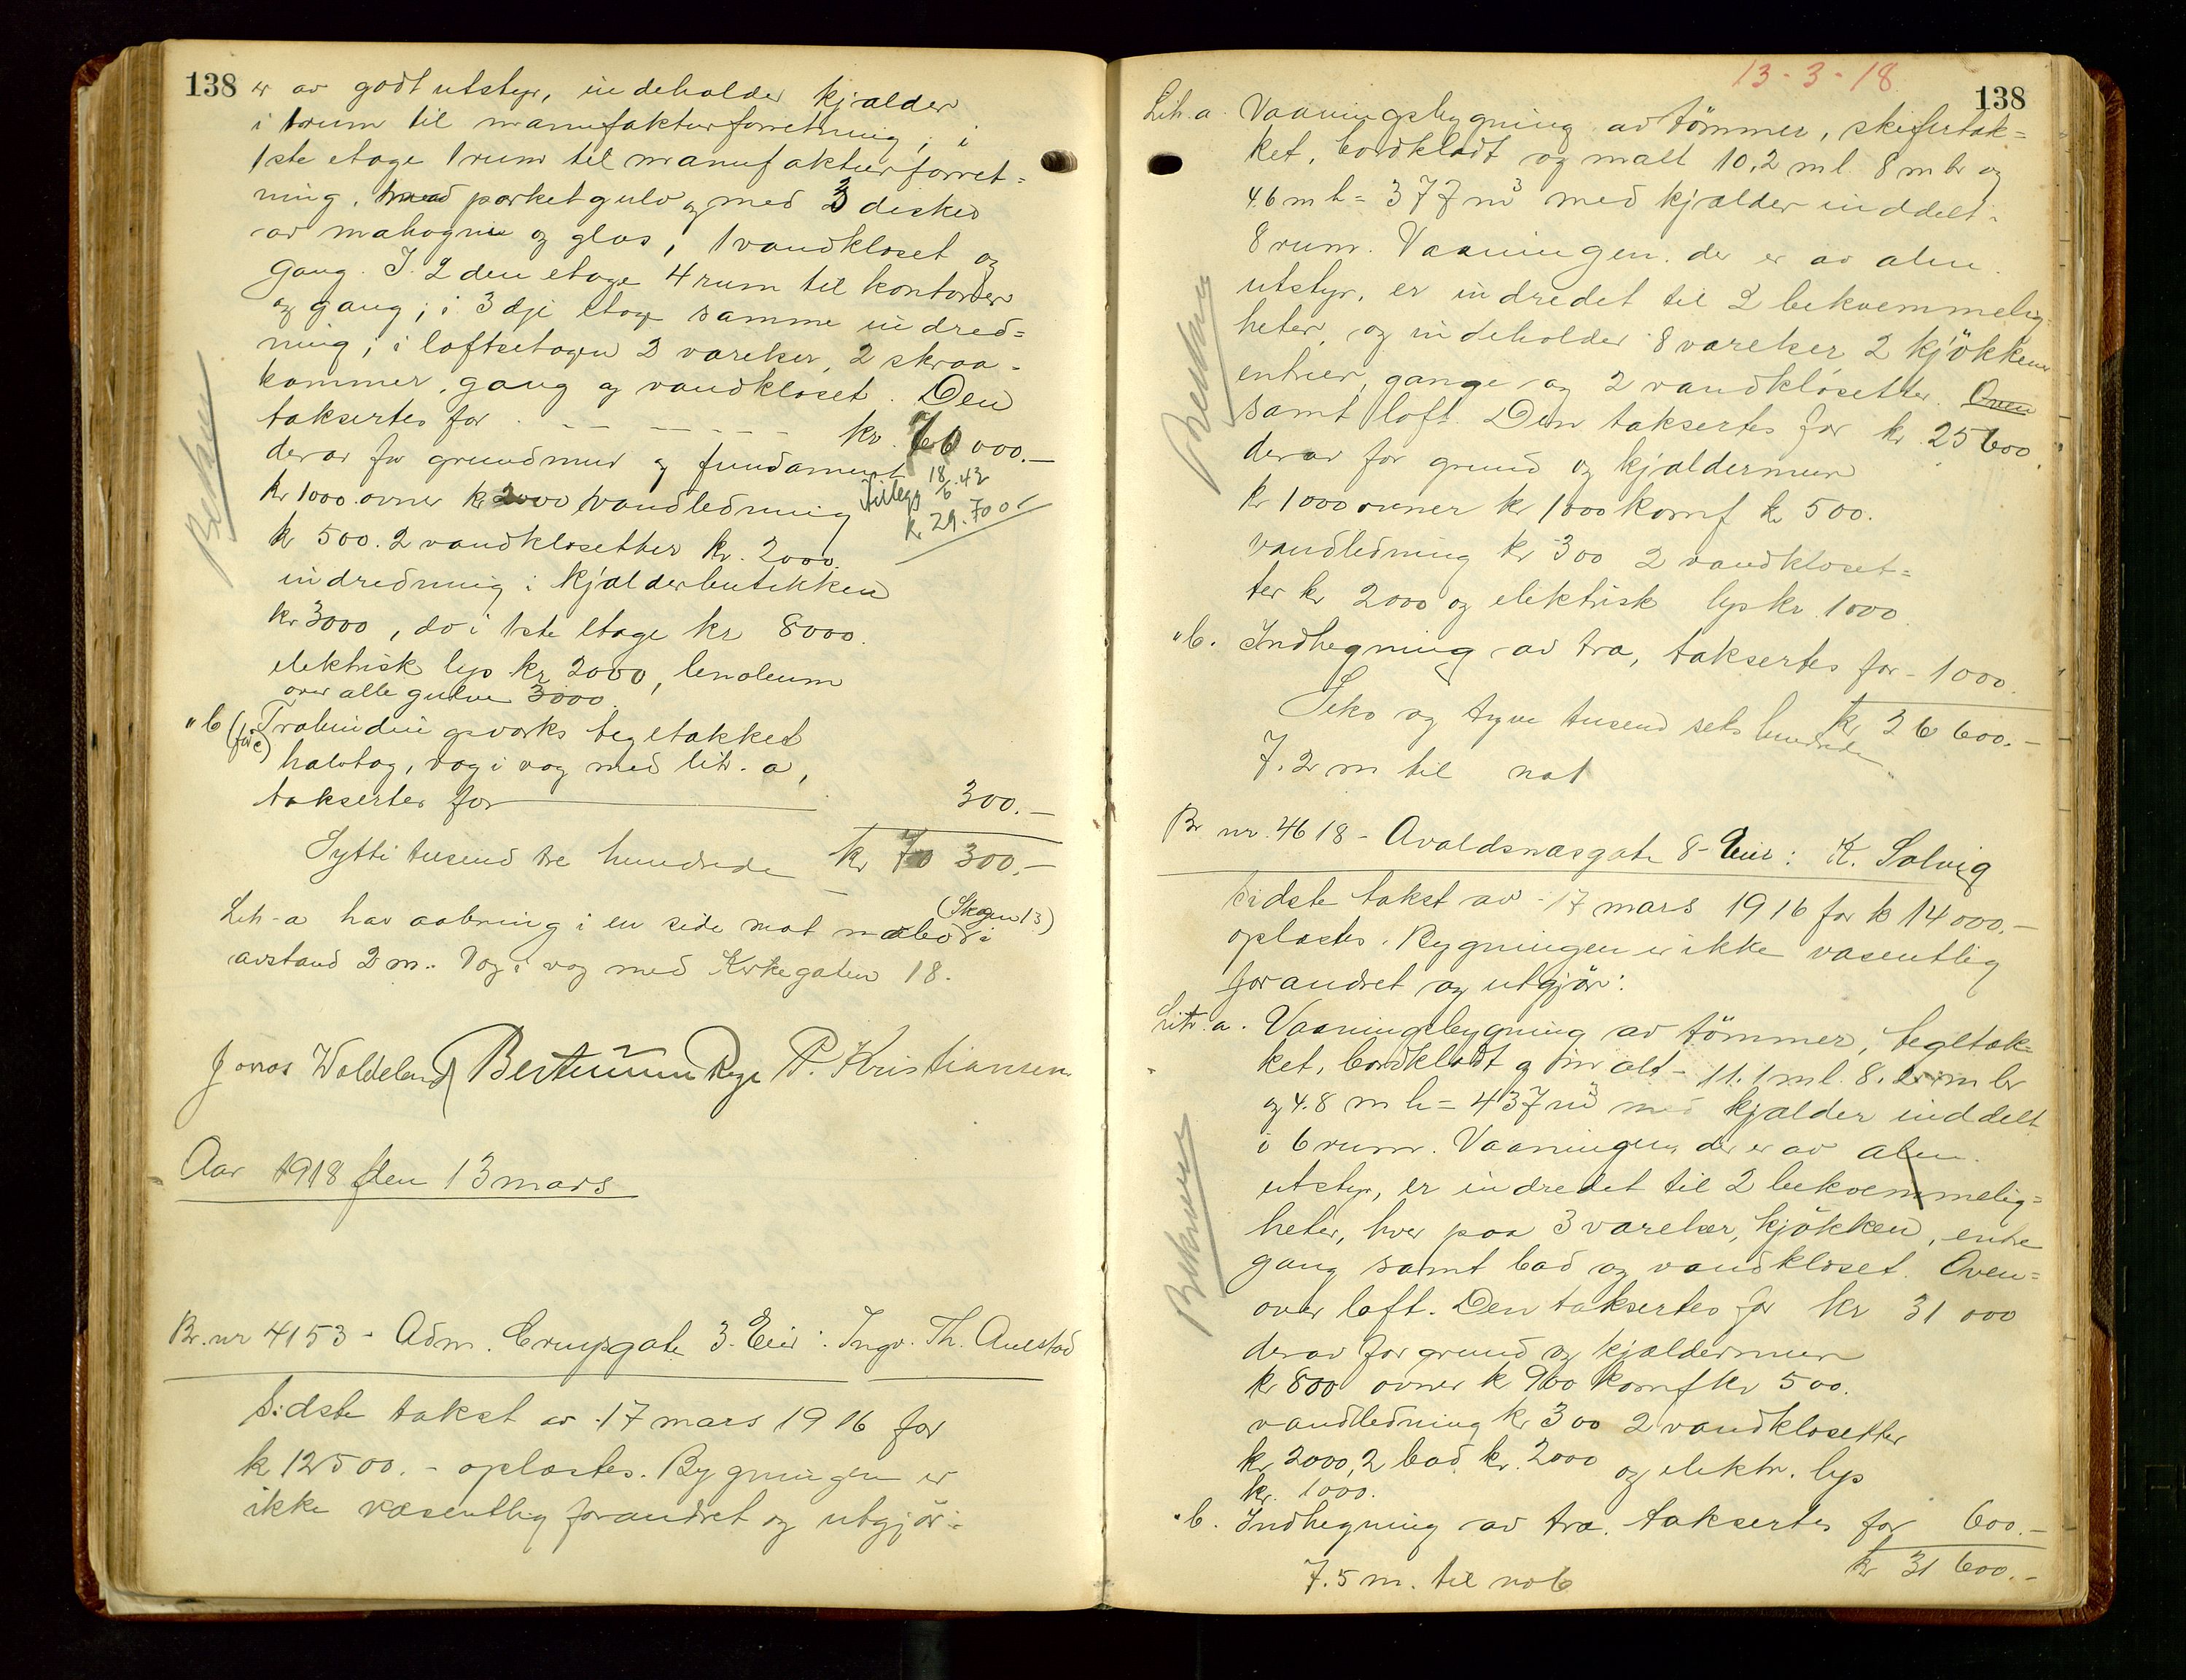 138
er av godt utstyr, indeholder kjælder
i 1 rum til manufakturforretning, i
1ste etage 1 rum til manufakturforret-
ning, med parketgulv og med 3 disker
av mahogni og glas, 1 vandkloset og
gang. I 2den etage 4 rum til kontorer
og gang; i 3dje etage samme indred-
ning; i loftsetagen 3 værelser, 2 skraa-
kammer, gang og vandkloset. Den
taksertes for kr. 70 000.-
derav for grundmur og fundament
kr 1000 ovner kr 2000 vandledning
Tillegg 18/6 42
kr 29.700
kr 500. 2 vandklosetter kr. 2000.
indredning i kjælderbutikken
kr 3000, do i 1ste etage kr 8000.
elektrisk lys kr 2000, linoleum
over alle gulve 3000.
" b (før c) Træbindingsverks tegltækket
halvtag, væg i væg med litr. a,
taksertes for 300.-
Sytti tusend tre hundrede kr 70 300.-
Litr. a har aabning i en side mot nabo i (Skagen 13)
avstand 2 m. Væg i væg med Kirkegaten 18.
Jonas Waldeland Bertinius Rege P. Kristiansen
Aar 1918 den 13 mars
Br. nr 4153 - Adm. Cruysgate 3. Eier: Ingv. Th. Aulstad
Sidste takst av 17 mars 1916 for
kr 12500.- oplæstes. Bygningen er
ikke væsentlig forandret og utgjør:
Bekken
13-3-18
138
Litr. a. Vaaningsbygning av tömmer, skifertæk-
ket, bordklædt og malt 10,2 m l. 8 m br og
4.6 m h = 377 m³ med kjælder inddelt i
8 rum. Vaaningen, der er av alm.
utstyr, er indredet til 2 bekvemmelig-
heter, og indeholder 8 værelser 2 kjökkener
entreer, gange og 2 vandklosetter. Oven
samt loft. Den taksertes for kr. 25 600.
derav for grund og kjældermur
kr 1000 ovner kr 1000 komf kr 500.
vandledning kr 300 2 vandkloset-
ter kr 2000 og elektrisk lys kr. 1000.
" b. Indhegning av træ, taksertes for - 1000.
Seks og tyve tusend seks hundrede kr 26 600.-
7.2 m til nabo
Br nr. 4618 - Avaldsnæsgate 8 - Eier: K. Solvig
Sidste takst av 17 mars 1916 for kr 14 000.-
oplæstes. Bygningen er ikke væsentlig
forandret og utgjör:
Litr. a. Vaaningsbygning av tömmer, tegltæk-
ket, bordklædt og malt - 11.1 m l. 8.2 m br
og 4.8 m h = 437 m³ med kjælder inddelt
i 6 rum. Vaaningen, der er av alm.
utstyr, er indredet til 2 bekvemmelig-
heter, hver paa 3 værelser, kjökken, entre
gang samt bad og vandkloset. Oven-
over loft. Den taksertes for kr 31 000
derav for grund og kjældermur
kr 800 ovner kr 900 komf kr 500.
vandledning kr 300 2 vandklosetter
kr 2000, 2 bad kr. 2000 og elektr. lys
kr. 1000.
" b. Indhegning av træ, taksertes for 600.-
kr 31 600.-
7.5 m. til nabo